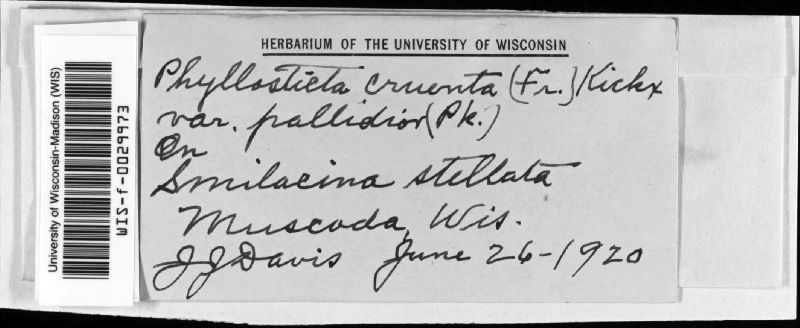 HERBARIUM OF THE UNIVERSITY OF WISCONSIN
Phyllosticta cruenta (Fr.) Kickx
var. pallidior (Pk.)
On
Smilacina stellata
Muscoda, Wis.
J J Davis June 26-1920
University of Wisconsin-Madison (WIS)
WIS-f-0029973